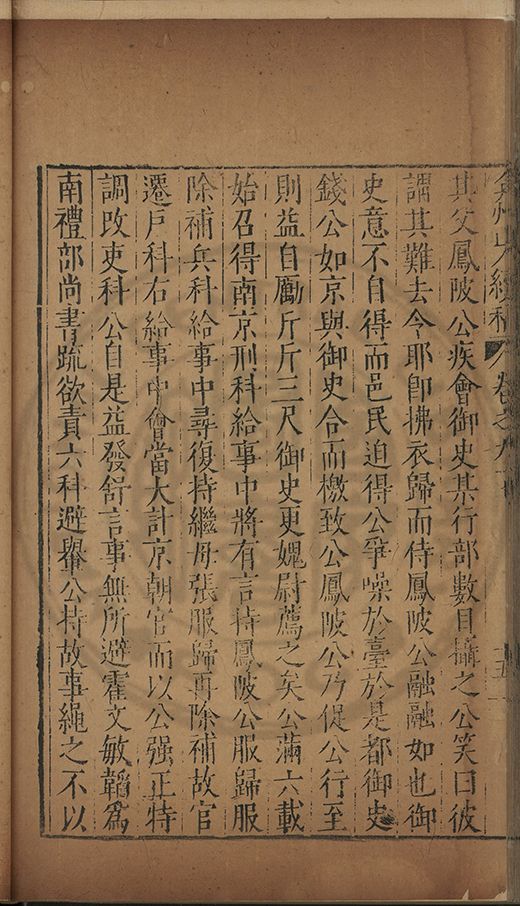 弇州山人續稿 卷之九十 五
其父鳳陂公疾會御史某行部數目攝之公笑曰彼
謂其難去令耶卽拂衣歸而侍鳳陂公融融如也御
史意不自得而邑民迫得公爭噪於臺於是都御史
錢公如京與御史合而檄致公鳳陂公乃促公行至
則益自勵斤斤三尺御史更媿尉薦之矣公滿六載
始召得南京刑科給事中將有言持鳳陂公服歸服
除補兵科給事中尋復持繼母張服歸再除補故官
遷戶科右給事中會當大計京朝官而以公强正特
調改吏科公自是益發舒言事無所避霍文敏韜爲
南禮部尚書疏欲責六科避轝公持故事繩之不以